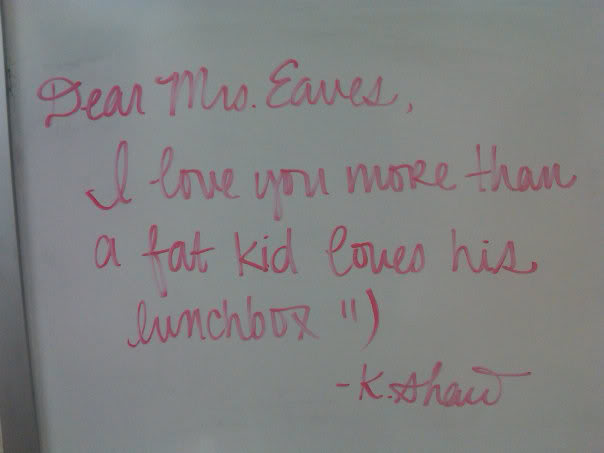 Dear Mrs. Eaves,
I love you more than
a fat kid loves his
lunchbox ")
-K.Shaw